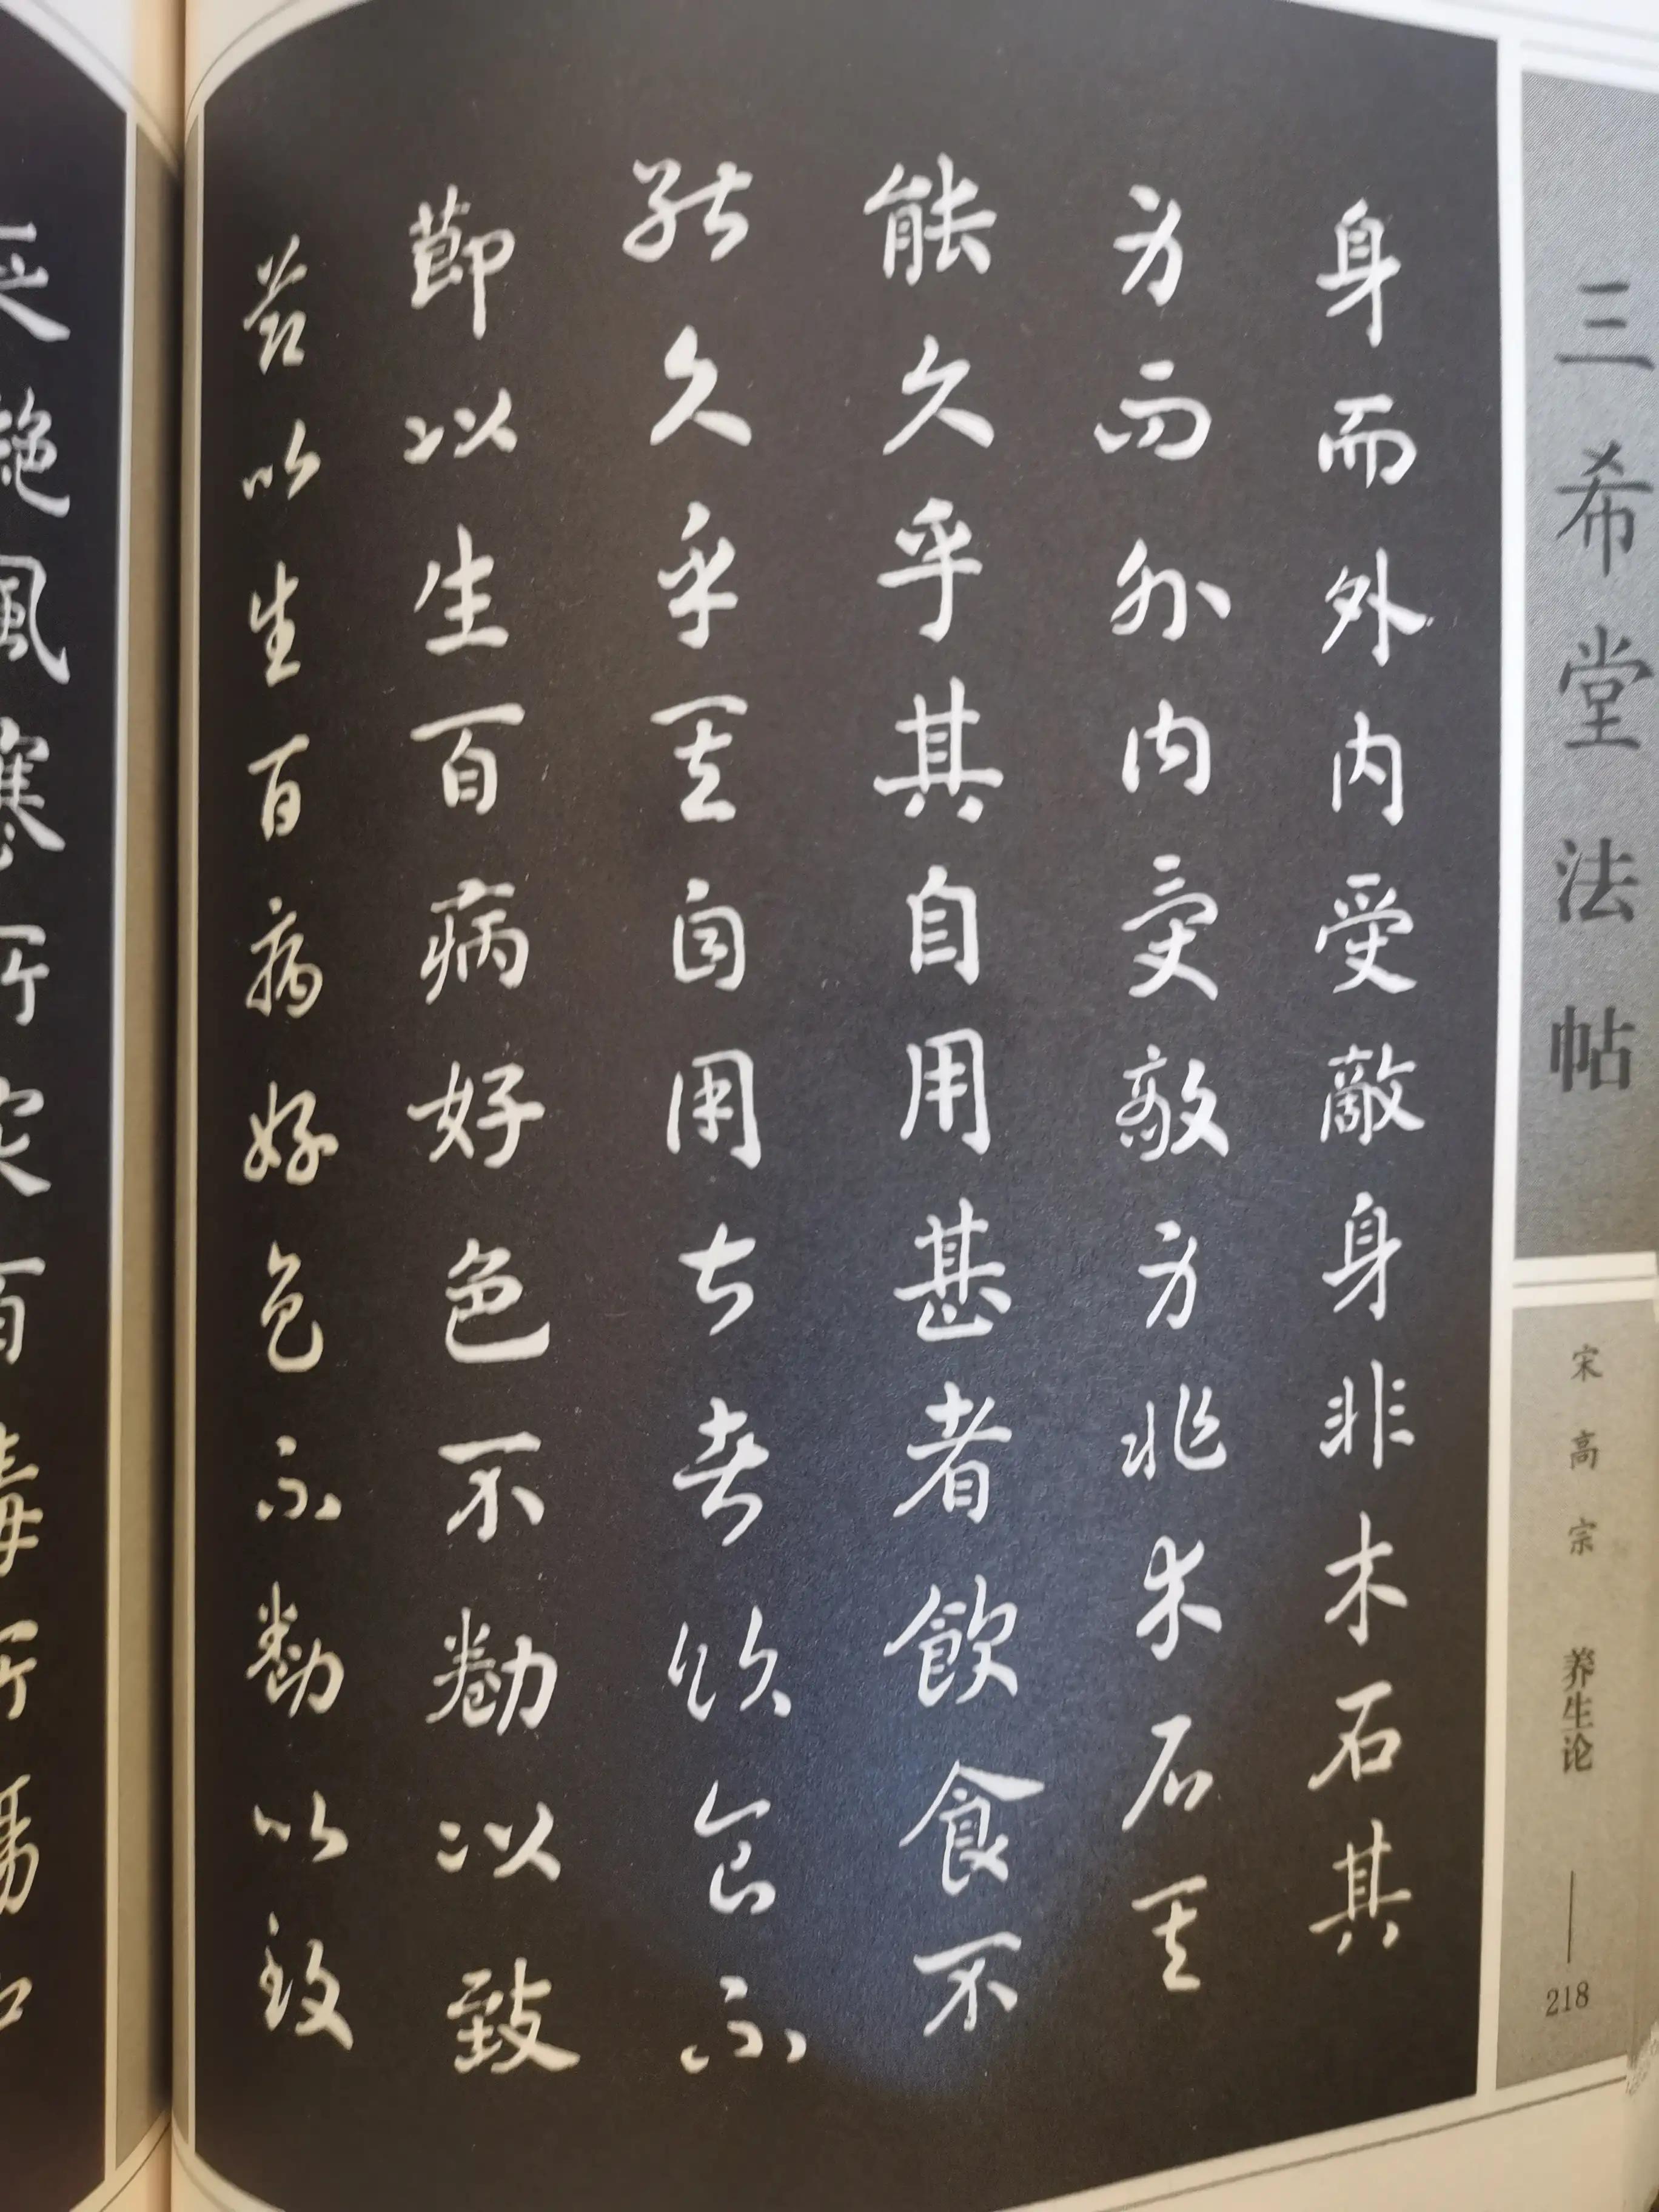 三希堂法帖
宋高宗 养生论
218
身而外内受敵身非木石其
身而外内受敵身非木石其
能久乎其自用甚者飲食不
能久乎其自用甚者飲食不
節以生百病好色不勌以致
節以生百病好色不勌以致
絶風寒所灾百毒所傷中